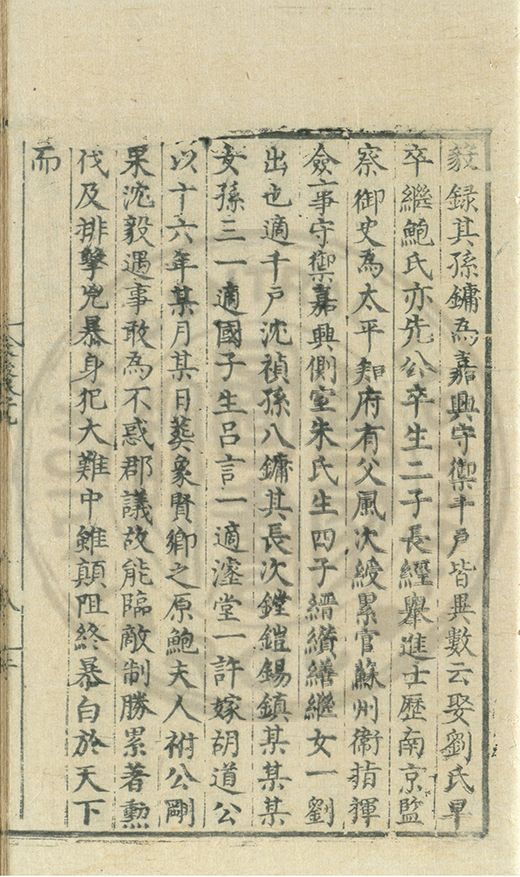 毅録其孫鏞為嘉興守禦千戶皆異數云娶劉氏早
卒繼鮑氏亦先公卒生二子長經舉進士歷南京監
察御史為太平知府有父風次綬累官蘇州衛指揮
僉事守禦嘉興側室朱氏生四子縉纘繕繼女一劉
出也適千戶沈禎孫八鏞其長次鏜鎧錫鎮某某某
女孫三一適國子生呂言一適濬堂一許嫁胡道公
以十六年某月某日葬象賢鄉之原鮑夫人祔公剛
果沈毅遇事敢為不惑郡議故能臨敵制勝累著勳
伐及排擊兇暴身犯大難中雖顛阻終暴白於天下
而